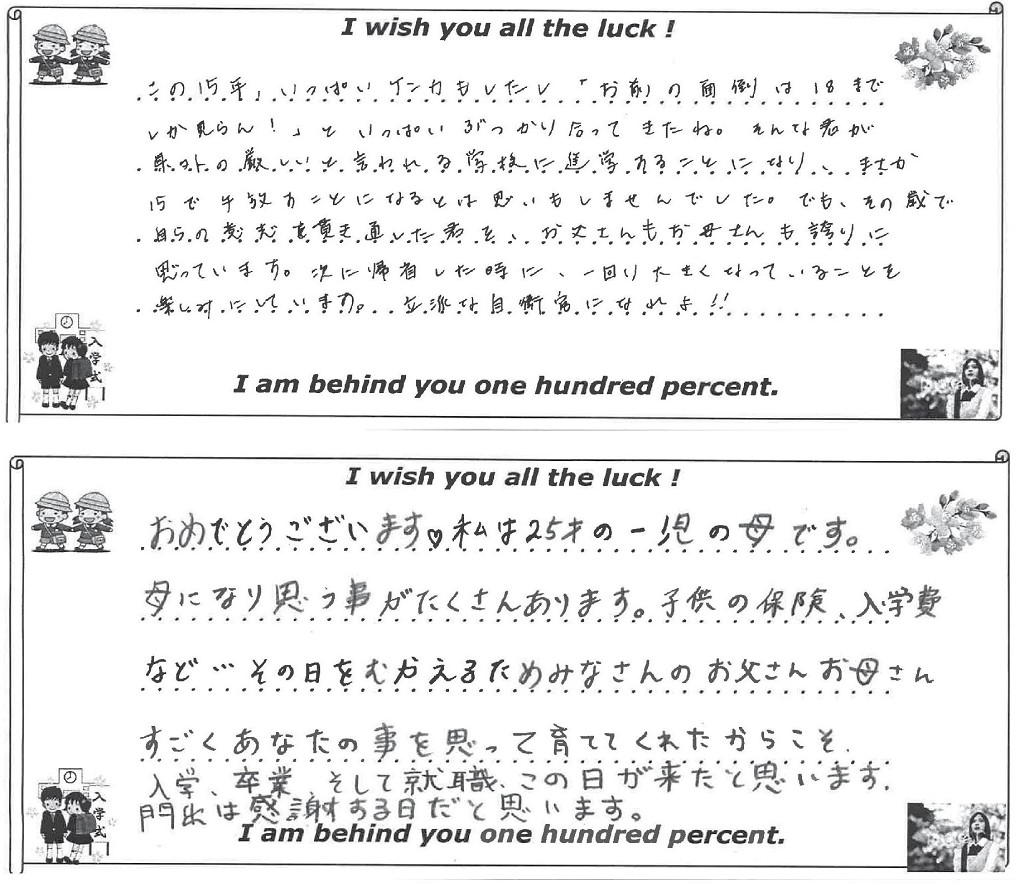 I wish you all the luck !
この15年、いっぱいケンカもしたし「お前の面倒は18まで
しか見らん!」といっぱいぶつかり合ってきたね。そんな君が
県外の厳しいと言われる学校に進学することになり、まさか
15で手放すことになるとは思いもしませんでした。でも、その歳で
自らの意志を貫き通した君を、お父さんもお母さんも誇りに
思っています。次に帰省した時に、一回り大きくなっていることを
楽しみにしています。立派な自衛官になれよ!!
入学式
I am behind you one hundred percent.
I wish you all the luck !
おめでとうございます♡私は25才の一児の母です。
母になり思う事がたくさんあります。子供の保険、入学費
など…その日をむかえるためみなさんのお父さんお母さん
すごくあなたの事を思って育ててくれたからこそ、
入学、卒業、そして就職、この日が来たと思います。
門出は感謝する日だと思います。
入学式
I am behind you one hundred percent.